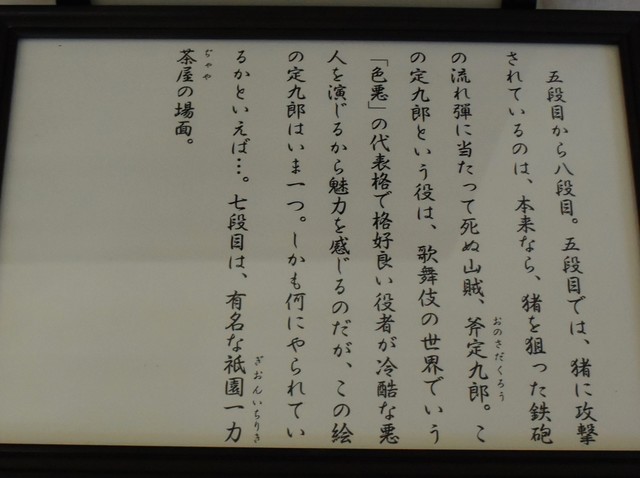 五段目から八段目。五段目では、猪に攻撃
されているのは、本来なら、猪を狙った鉄砲
の流れ弾に当たって死ぬ山賊、斧定九郎。こ
おのさだくろう
の定九郎という役は、歌舞伎の世界でいう
「色悪」の代表格で格好良い役者が冷酷な悪
人を演じるから魅力を感じるのだが、この絵
の定九郎はいま一つ。しかも何にやられてい
るかといえば…。七段目は、有名な祇園一力
ぎおんいちりき
茶屋の場面。
ぢゃや